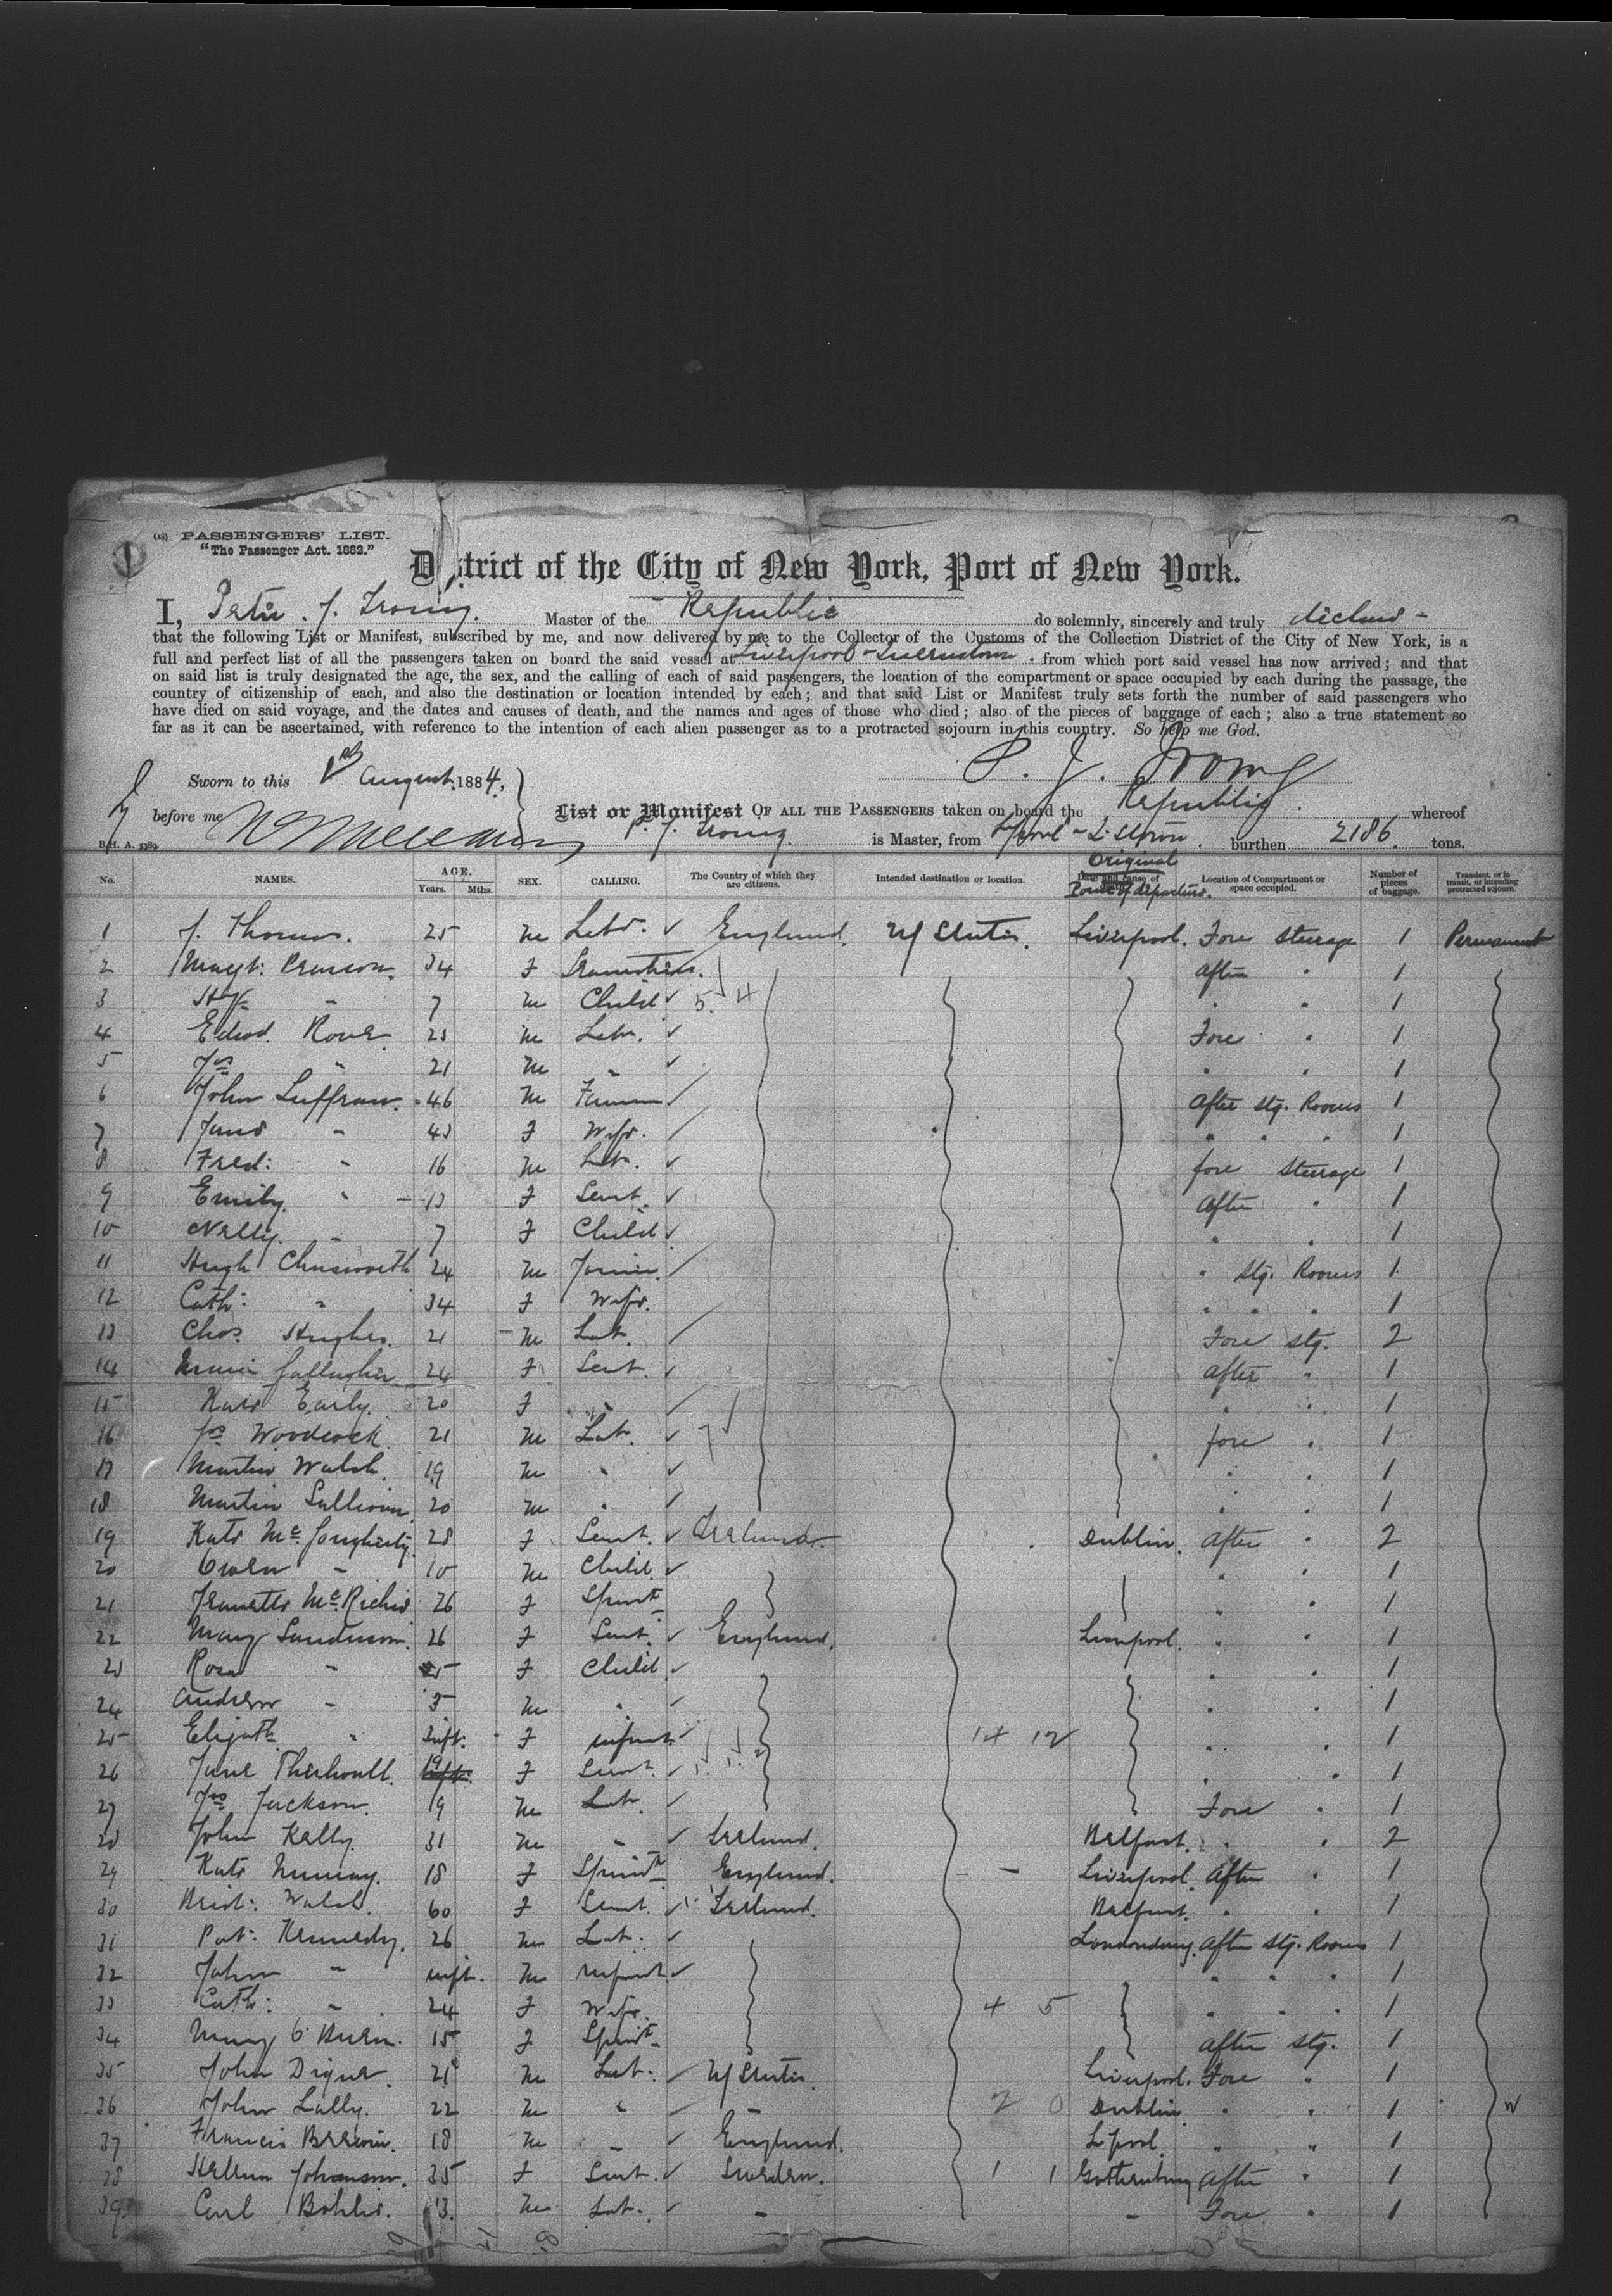 (18) PASSENGERS' LIST.
"The Passenger Act. 1882."
1
District of the City of New York, Port of New York.
I, Peter J. Irving. Master of the Republic do solemnly, sincerely and truly declare -
that the following List or Manifest, subscribed by me, and now delivered by me to the Collector of the Customs of the Collection District of the City of New York, is a
full and perfect list of all the passengers taken on board the said vessel at Liverpool - Queenstown . from which port said vessel has now arrived; and that
on said list is truly designated the age, the sex, and the calling of each of said passengers, the location of the compartment or space occupied by each during the passage, the
country of citizenship of each, and also the destination or location intended by each; and that said List or Manifest truly sets forth the number of said passengers who
have died on said voyage, and the dates and causes of death, and the names and ages of those who died; also of the pieces of baggage of each; also a true statement so
far as it can be ascertained, with reference to the intention of each alien passenger as to a protracted sojourn in this country. So help me God.
P. J. Irving
Sworn to this 1st August 1884,
before me
List or Manifest OF ALL THE PASSENGERS taken on board the Republic. whereof
P. J. Irving. is Master, from L'pool - Q. Stown. burthen 2186. tons.
No. NAMES. AGE. Years. Mths. SEX. CALLING. The Country of which they are citizens. Intended destination or location. Original Port of departure. Location of Compartment or space occupied. Number of pieces of baggage. Transient, or in transit, or intending protracted sojourn.
1 J. Thomas. 25 M Labr. England. U States. Liverpool. Fore Steerage 1 Permanent
2 Magt: 34 F After " 1
3 Hy " 7 M Child 5. 4 " " 1
4 Edwd. Rowe 23 M Labr. Fore " 1
5 Jas " 21 M " " " 1
6 John Luffman. 46 M Farmer After Stg. Rooms 1
7 Jane " 43 F Wife. " " " 1
8 Fred: " 16 M Lab. fore Steerage 1
9 Emily. " 13 F Servt. After " 1
10 Nelly. " 7 F Child " " 1
11 Hugh 24 M Joiner. " Stg. Rooms 1
12 Cath: " 34 F Wife. " " " 1
13 Chas. Hughes. 21 M Lab. Fore Stg. 2
14 Gallagher 24 F Servt. After " 1
15 Kate Early. 20 F " " " 1
16 Jas Woodcock 21 M Lab. 7 fore " 1
17 Martin Walsh. 19 M " " " 1
18 Martin Sullivan 20 M " " " 1
19 Kate 28 F Servt. Ireland. Dublin. After " 2
20 Owen " 10 M Child. " " 1
21 26 F Spinstr " " 1
22 Mary Sanderson. 26 F Servt. England. Liverpool. " " 1
23 Rosa " F Child " " 1
24 Andrew " 3 M " " " 1
25 Elizath " Inft. F infant 14 12 " " 1
26 Jane 19 F Servt. " " 1
27 Jas Jackson. 19 M Lab. Fore " 1
28 John Kelly. 31 M " Ireland. Belfast. " " 2
29 Kate Murray. 18 F Spinstr England. Liverpool. After " 1
30 Bridt: Walsh. 60 F Servt. Ireland. Belfast. " " 1
31 Pat: Kennedy. 26 M Lab. Londonderry. After Stg. Rooms 1
32 John " inft. M infant " " " 1
33 Cath: " 24 F Wife. 4 5 " " " 1
34 Mary O'Brien. 15 F Spinstr After Stg. 1
35 John 21 M Lab. U States. Liverpool. Fore " 1
36 John Lally. 22 M " " 2 0 Dublin. " " 1 W
37 Francis 18 M " England. L'pool. " " 1
38 Hellena Johanson. 35 F Servt. Sweden. 1 1 Gothenburg After " 1
39 Carl 13. M Lab. " " Fore " 1